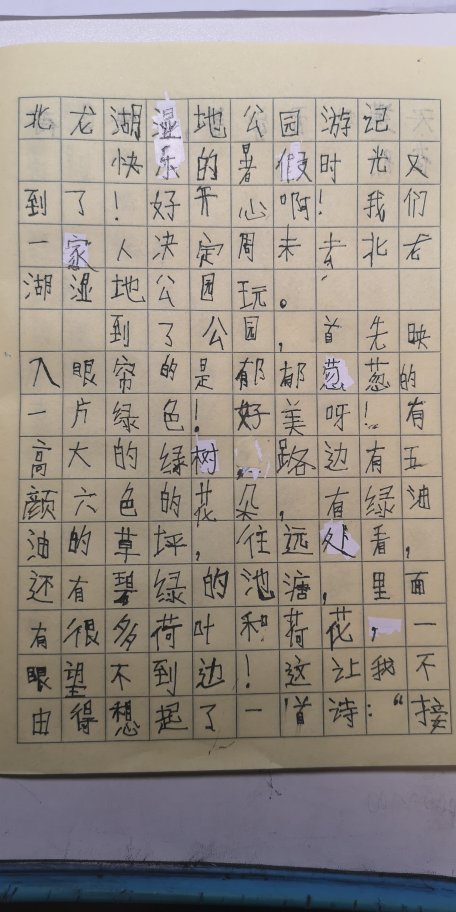 北龙湖湿地公园游记
快乐的暑假时光又
到了！好开心啊！我们
一家人决定周末去北龙
湖湿地公园玩。
到了公园，首先映
入眼帘的是郁郁葱葱的
一片绿色！好美呀！有
高大的绿树，路边有五
颜六色的花朵，有绿油
油的草坪，往远处看，
还有碧绿的池溏，里面
有很多荷叶和荷花，一
眼望不到边！这让我不
由得想起了一首诗：“接